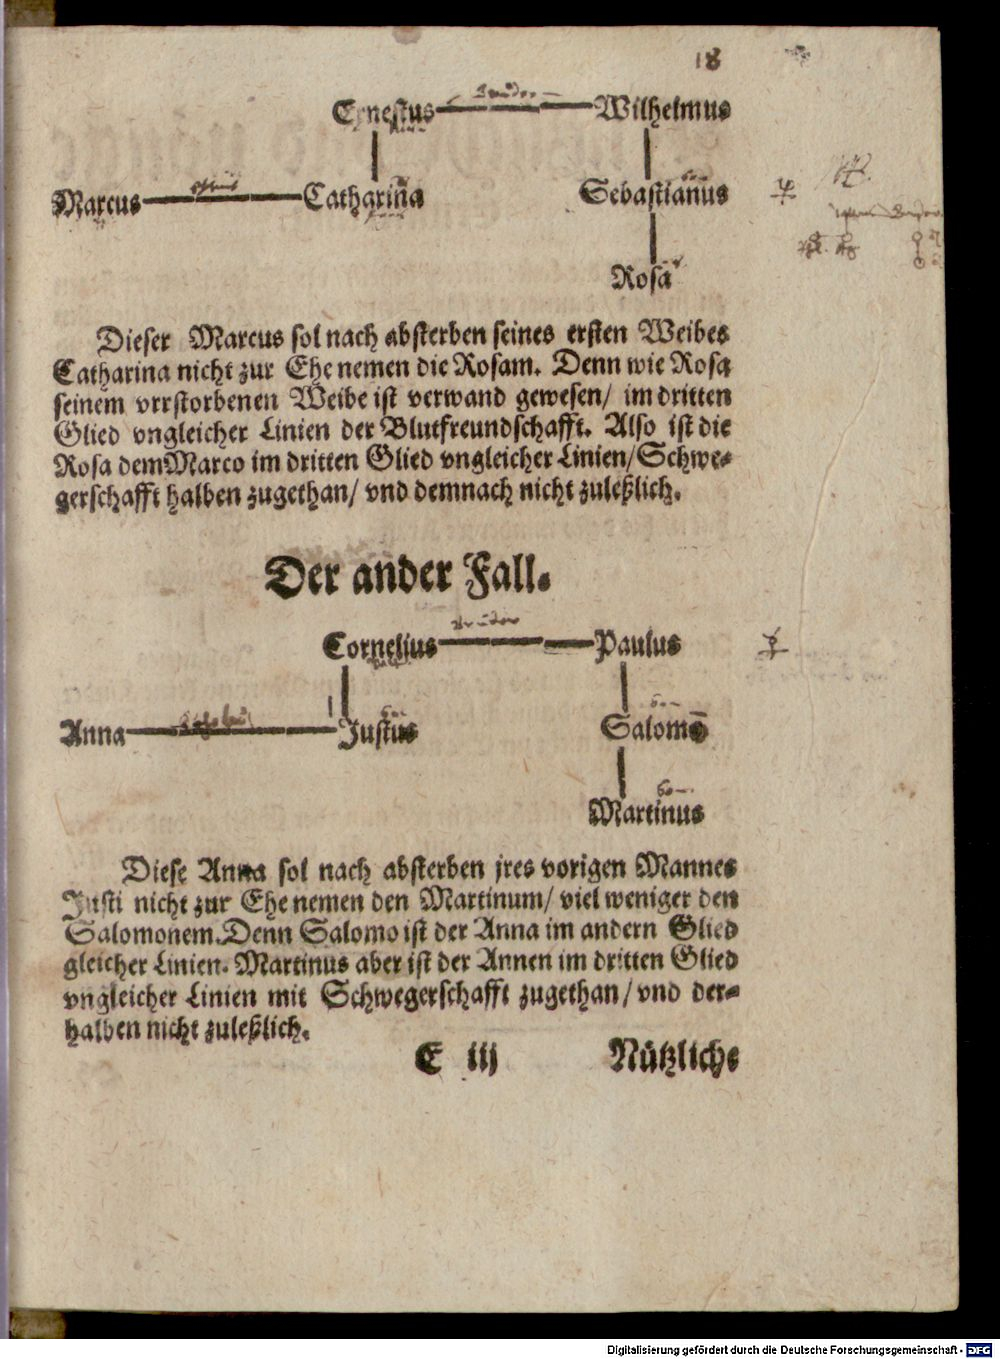 18
Ernestus Brüder Wilhelmus
Marcus Catharina Sebastianus
Rosa
Dieser Marcus sol nach absterben seines ersten Weibes
Catharina nicht zur Ehe nemen die Rosam. Denn wie Rosa
seinem vrrstorbenen Weibe ist verwand gewesen/ im dritten
Glied vngleicher Linien der Blutfreundschafft. Also ist die
Rosa dem Marco im dritten Glied vngleicher Linien/ Schwe-
gerschafft halben zugethan/ vnd demnach nicht zuleßlich.
Der ander Fall.
Cornelius Brüder Paulus
Anna Justus Salomō
Martinus
Diese Anna sol nach absterben jres vorigen Mannes
Justi nicht zur Ehe nemen den Martinum/ viel weniger den
Salomonem. Denn Salomo ist der Anna im andern Glied
gleicher Linien. Martinus aber ist der Annen im dritten Glied
vngleicher Linien mit Schwegerschafft zugethan/ vnd der-
halben nicht zuleßlich.
E iij Nützliche
Digitalisierung gefördert durch die Deutsche Forschungsgemeinschaft - DFG